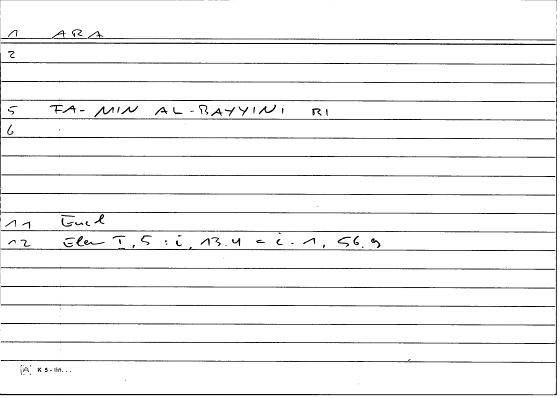 1 ARA
2
5 FA- MIN AL-BAYYINI RI
6
11 Eucl
12 Elem I, 5 : i, 13.4 = i. 1, 56.9
[A] K 5 -